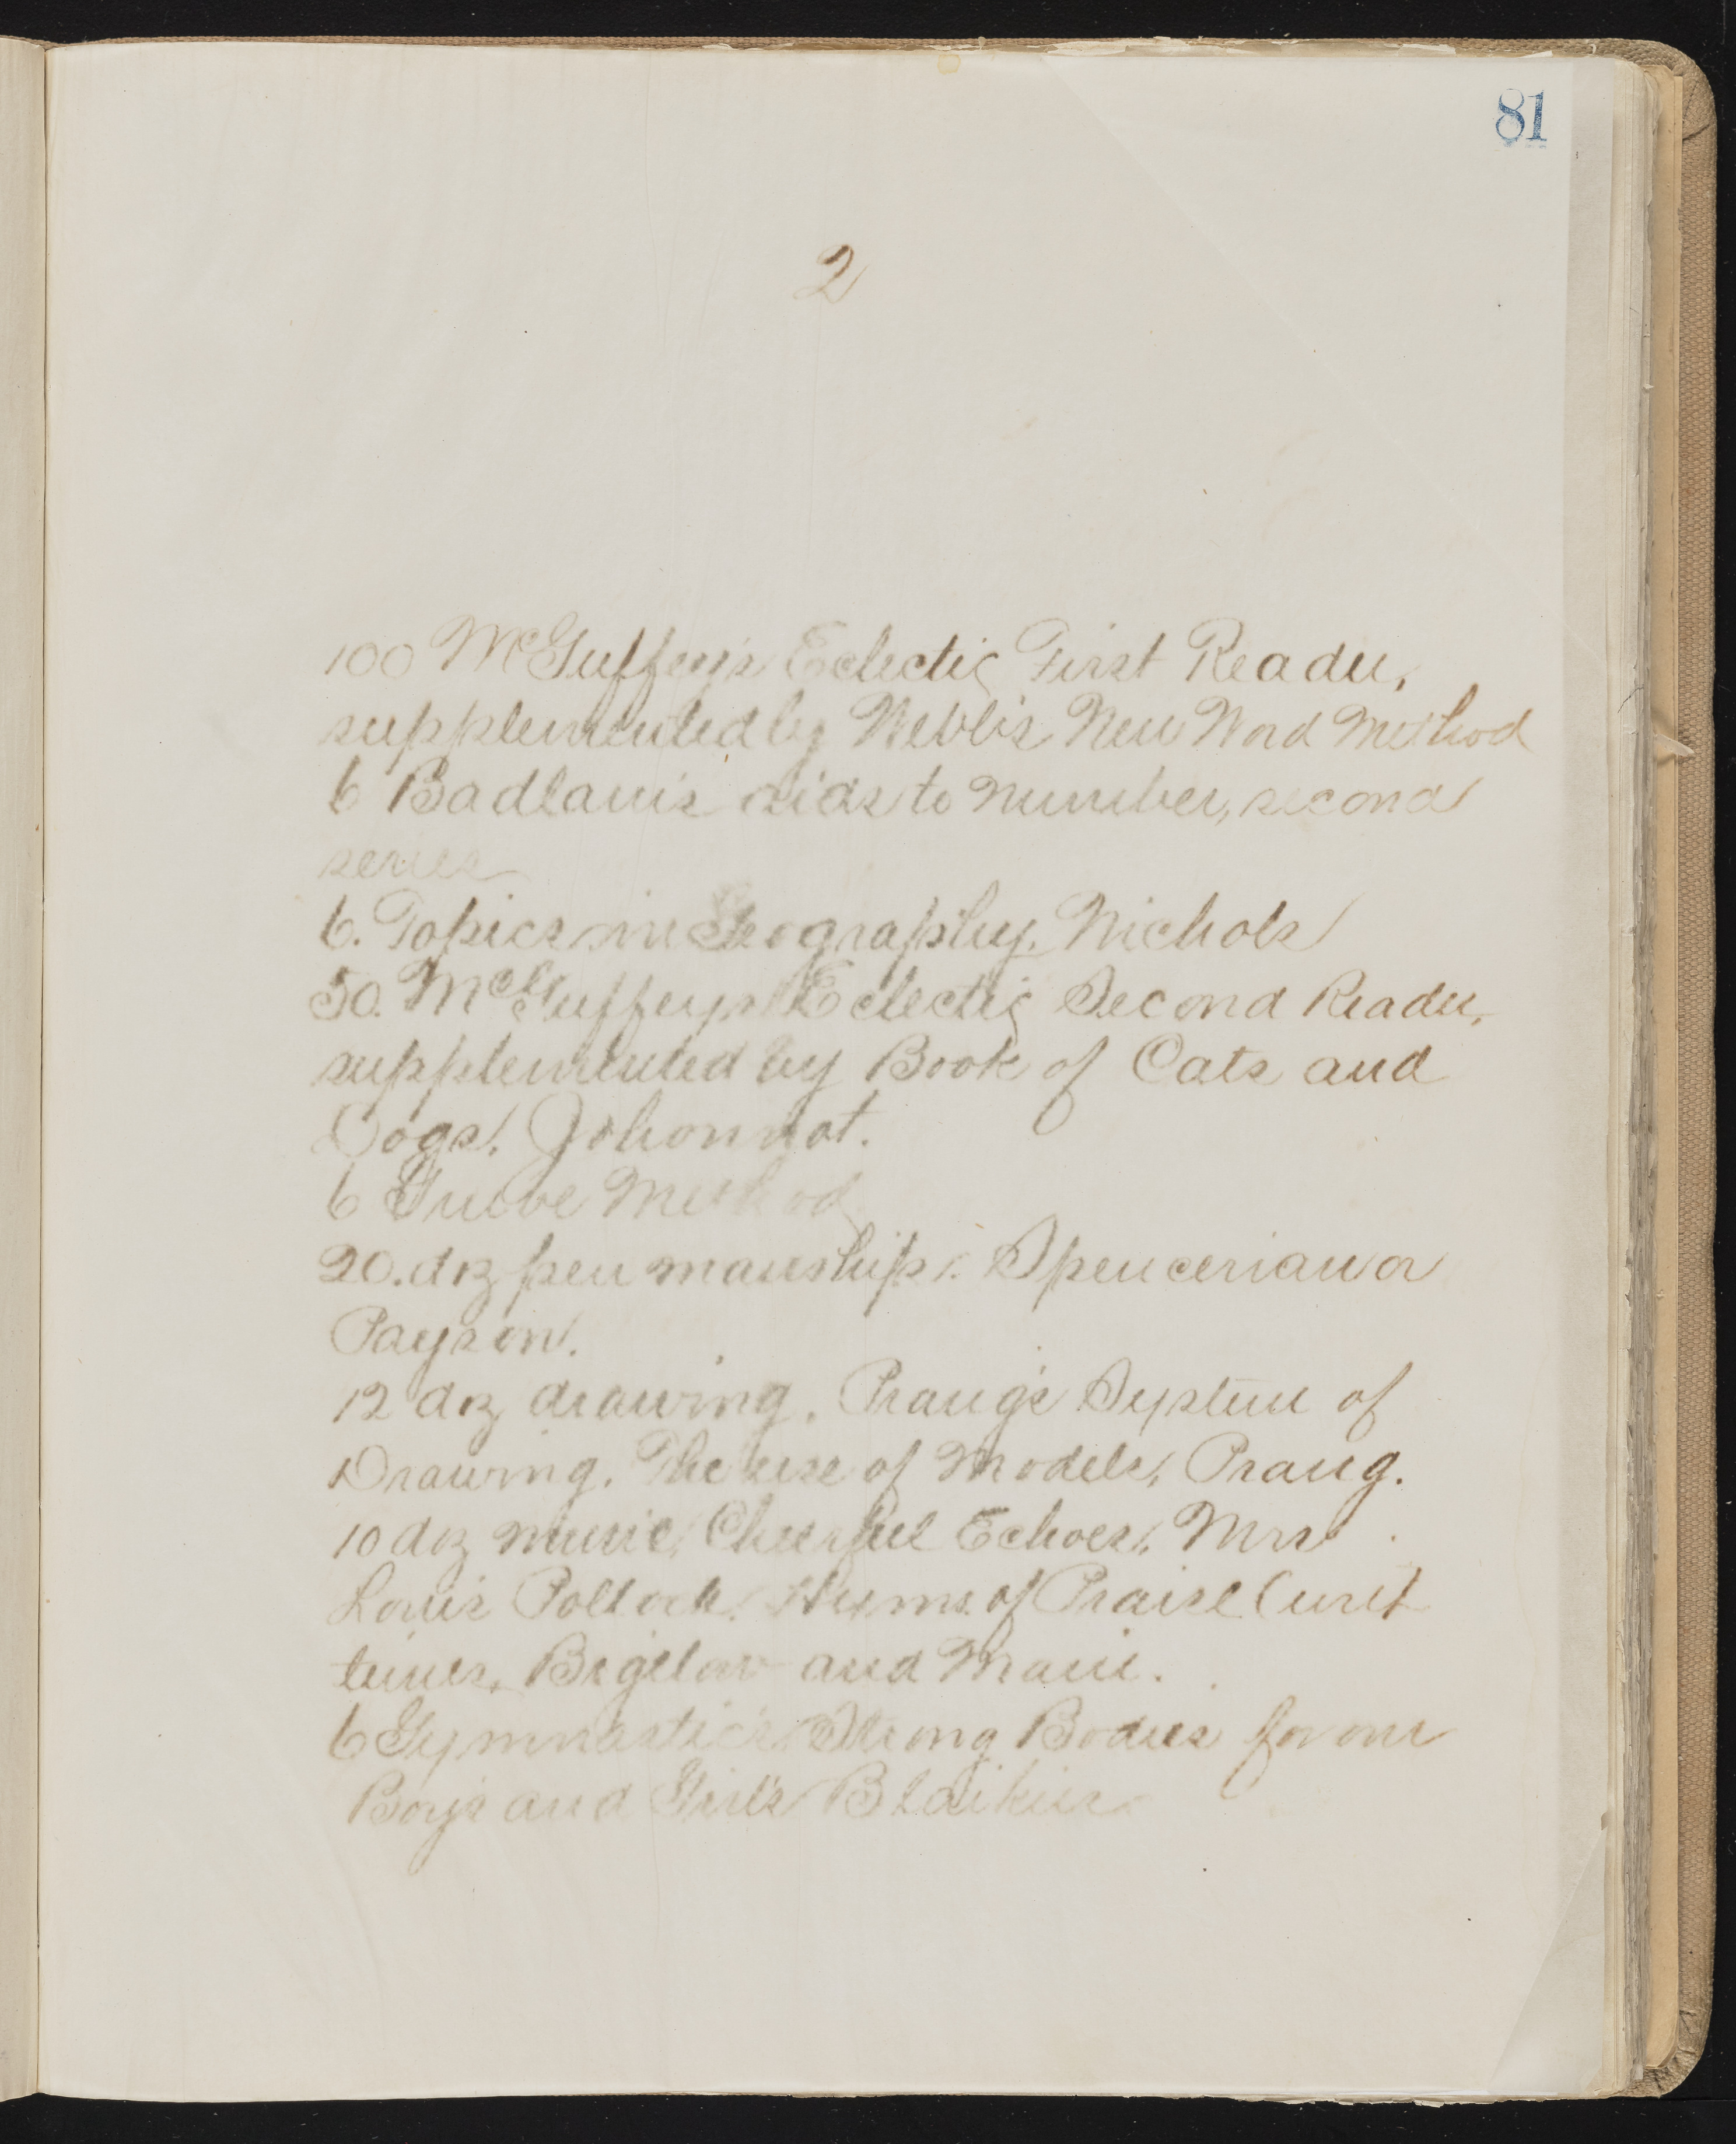 81
2
100 McGuffey's Eclectic First Reader,
supplemented by Webb's New Word Method
6 Badlam's aids to Number, second
series
6. Topics in Geography, Nichols
50. McGuffey's Eclectic Second Reader,
supplemented by Book of Cats and
Dogs, Johonnot.
6 Grube Method
20. doz penmanship. Spencerian or
Payson.
12 doz drawing. Prang's System of
Drawing. The use of Models, Prang.
10 doz music, Cheerful Echoes, Mrs
Louis Pollock. Hymns of Praise (with
tunes, Bigelow and Main.
6 Gymnastics Strong Bodies for our
Boys and Girls Blaikies